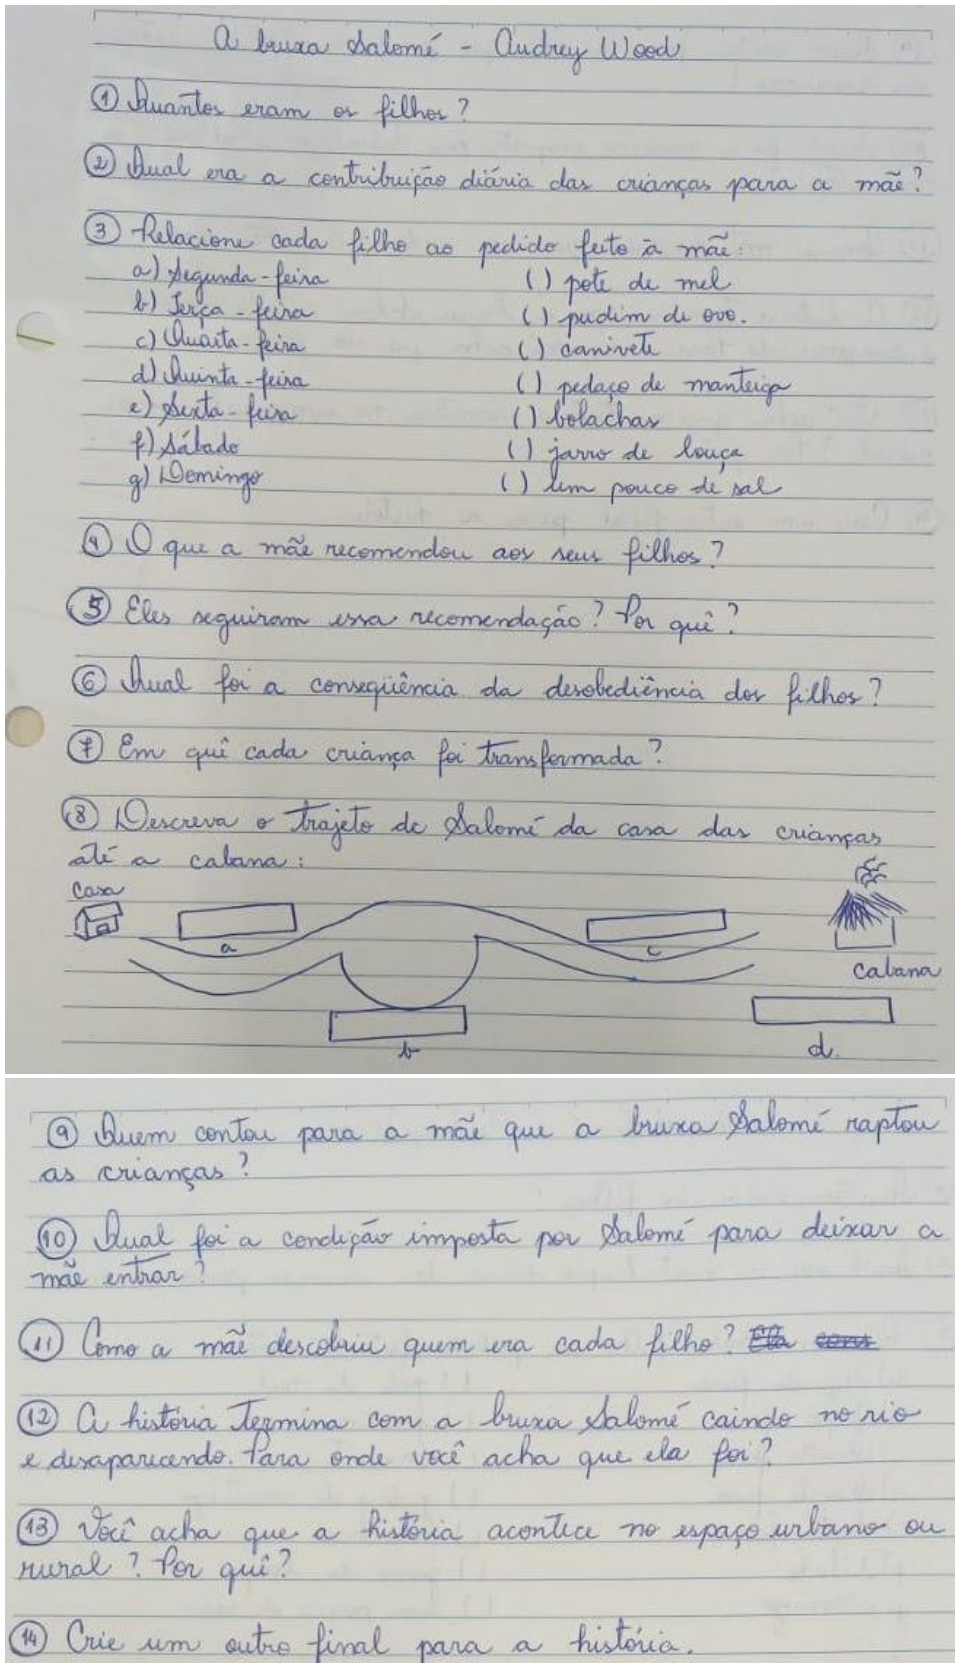 A bruxa Salomé - Audrey Wood
① Quantos eram os filhos?
② Qual era a contribuição diária das crianças para a mãe?
③ Relacione cada filho ao pedido feito à mãe:
a) Segunda-feira () pote de mel
b) Terça-feira () pudim de ovo.
c) Quarta-feira () canivete
d) Quinta-feira () pedaço de manteiga
e) Sexta-feira () bolachas
f) Sábado () jarro de louça
g) Domingo () Um pouco de sal
④ O que a mãe recomendou aos seus filhos?
⑤ Eles seguiram essa recomendação? Por quê?
⑥ Qual foi a conseqüência da desobediência dos filhos?
⑦ Em quê cada criança foi transformada?
⑧ Descreva o trajeto de Salomé da casa das crianças
até a cabana:
casa
a
c
cabana
b
d.
⑨ Quem contou para a mãe que a bruxa Salomé raptou
as crianças?
⑩ Qual foi a condição imposta por Salomé para deixar a
mãe entrar?
⑪ Como a mãe descobriu quem era cada filho?
⑫ A história termina com a bruxa Salomé caindo no rio
e desaparecendo. Para onde você acha que ela foi?
⑬ Você acha que a história acontece no espaço urbano ou
rural? Por quê?
⑭ Crie um outro final para a história.